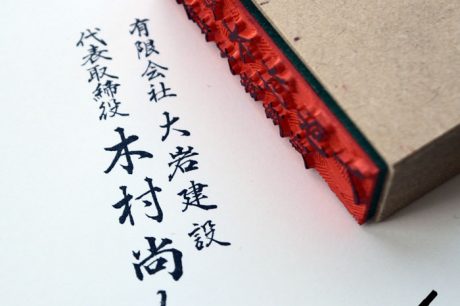 有限会社 大岩建設
代表取締役 木村尚